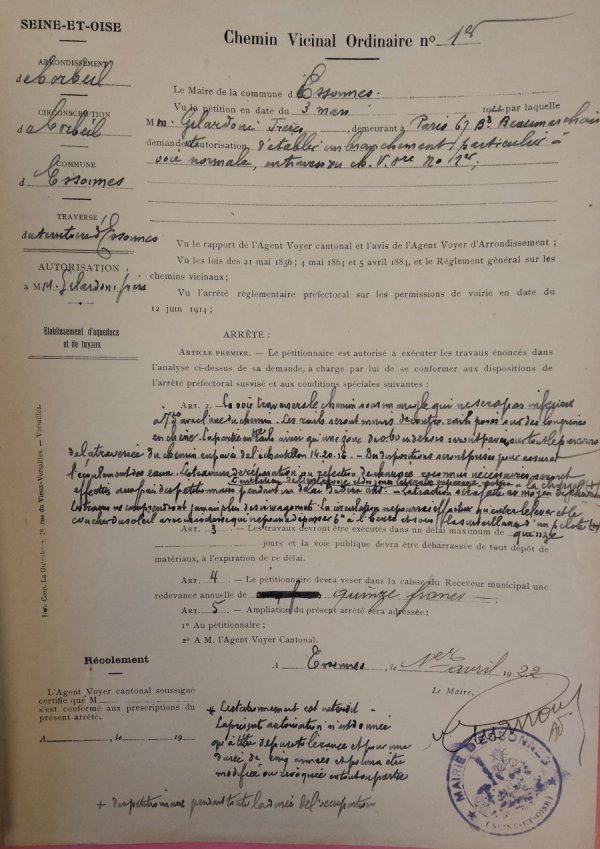 SEINE-ET-OISE
ARRONDISSEMENT
d Corbeil
CIRCONSCRIPTION
d Corbeil
COMMUNE
d Essonnes
TRAVERSE
du territoire d'Essonnes
AUTORISATION
à MM. Gilardoni frères
Etablissement d'aqueducs
et de tuyaux
Chemin Vicinal Ordinaire nº 1er
Le Maire de la commune d Essonnes
Vu la pétition en date du 3 mars 1922 par laquelle
M m. Gilardoni Frères, demeurant à Paris 67 Bd Beaumarchais
demande autorisation d'établir un branchement particulier à
voie normale, en travers du ch. V. Ore No 1er;
Vu le rapport de l'Agent Voyer cantonal et l'avis de l'Agent Voyer d'Arrondissement ;
Vu les lois des 21 mai 1836 ; 4 mai 1864 et 5 avril 1884, et le Réglement général sur les
chemins vicinaux ;
Vu l'arrêté règlementaire préfectoral sur les permissions de voirie en date du
12 juin 1914 ;
ARRÊTE :
ARTICLE PREMIER. — Le pétitionnaire est autorisé à exécuter les travaux énoncés dans
l'analyse ci-dessus de sa demande, à charge par lui de se conformer aux dispositions de
l'arrêté préfectoral susvisé et aux conditions spéciales suivantes :
ART. 2. La voie traversera le chemin sous un angle qui ne sera pas inférieur
avec l'axe du chemin. Les rails seront munis de contre rails posés sur des longrines
en chêne. La partie entre rails ainsi qu'une zone de 0,60 en dehors seront pavées sur toute la
de la traversée du chemin en pavés de l'échantillon 14.20.16. — Des dispositions seront prises pour assurer
l'écoulement des eaux. Les travaux de réparation ou réfection de chaussée reconnus nécessaires seront
effectués aux frais des pétitionnaires pendant un délai de deux ans. — La traction sera faite au moyen de
jamais plus de wagons. La circulation ne pourra s'effectuer qu'entre le lever et le
coucher du soleil avec une vitesse qui ne pourra dépasser 6 K à l'heure et sous la surveillance d'un pilote
ART. 3 — Les travaux devront être exécutés dans un délai maximum de quinze
jours et la voie publique devra être débarrassée de tout dépôt de
matériaux, à l'expiration de ce délai.
ART. 4 — Le pétitionnaire devra veser dans la caisse du Receveur municipal une
redevance annuelle de quinze francs —
ART. 5 — Ampliation du présent arrêté sera adressée :
1º Au pétitionnaire ;
2º A M. l'Agent Voyer Cantonal.
A Essonnes, le 1er avril 1922
Le Maire,
Récolement
L'Agent Voyer cantonal soussigné
certifie que M
s'est conformé aux prescriptions du
présent arrêté.
A , le 19
+ Le stationnement est interdit —
La présente autorisation n'est donnée
qu'à titre de pure tolérance et pour une
durée de cinq années et pourra être
modifiée ou révoquée en tout ou partie
+ des pétitionnaires pendant toute la durée de l'occupation
MAIRIE D'ESSONNES
(SEINE-ET-OISE)
28, rue du Vieux-Versailles. — Versailles.